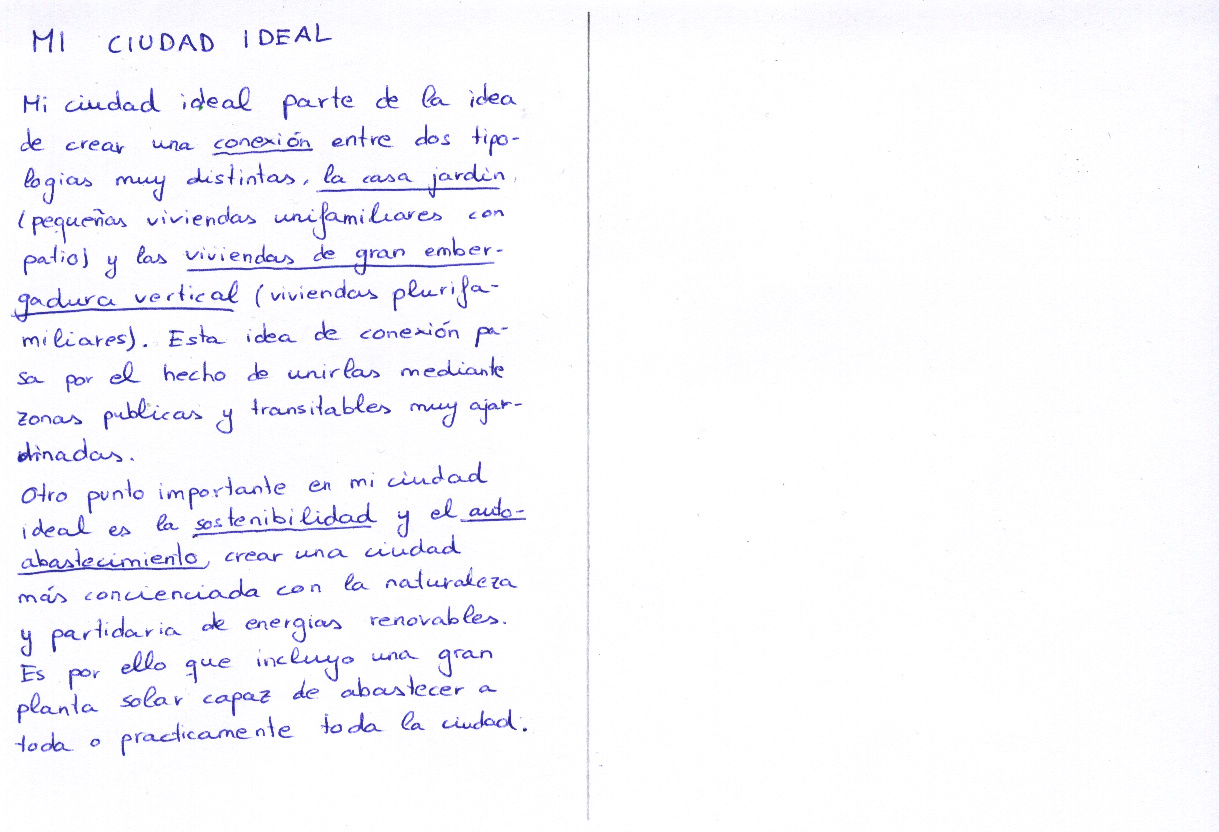 MI CIUDAD IDEAL
Mi ciudad ideal parte de la idea
de crear una conexión entre dos tipo-
logias muy distintas, la casa jardín
(pequeñas viviendas unifamiliares con
patio) y las viviendas de gran ember-
gadura vertical (viviendas plurifa-
miliares). Esta idea de conexión pa-
sa por el hecho de unirlas mediante
zonas publicas y transitables muy ajar-
dinadas.
Otro punto importante en mi ciudad
ideal es la sostenibilidad y el auto-
abastecimiento, crear una ciudad
más concienciada con la naturaleza
y partidaria de energias renovables.
Es por ello que incluyo una gran
planta solar capaz de abastecer a
toda o practicamente toda la ciudad.